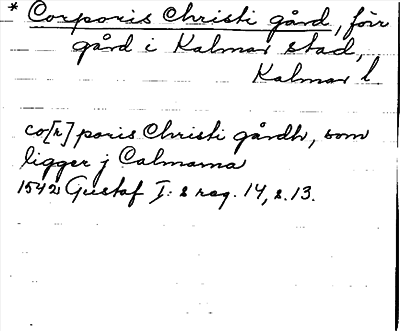 * Corporis Christi gård, förr
gård i Kalmar stad,
Kalmar l.
co[r]poris Christi gårdh, som
ligger j Calmarna
1542 Gustaf I:s reg. 14, s. 13.